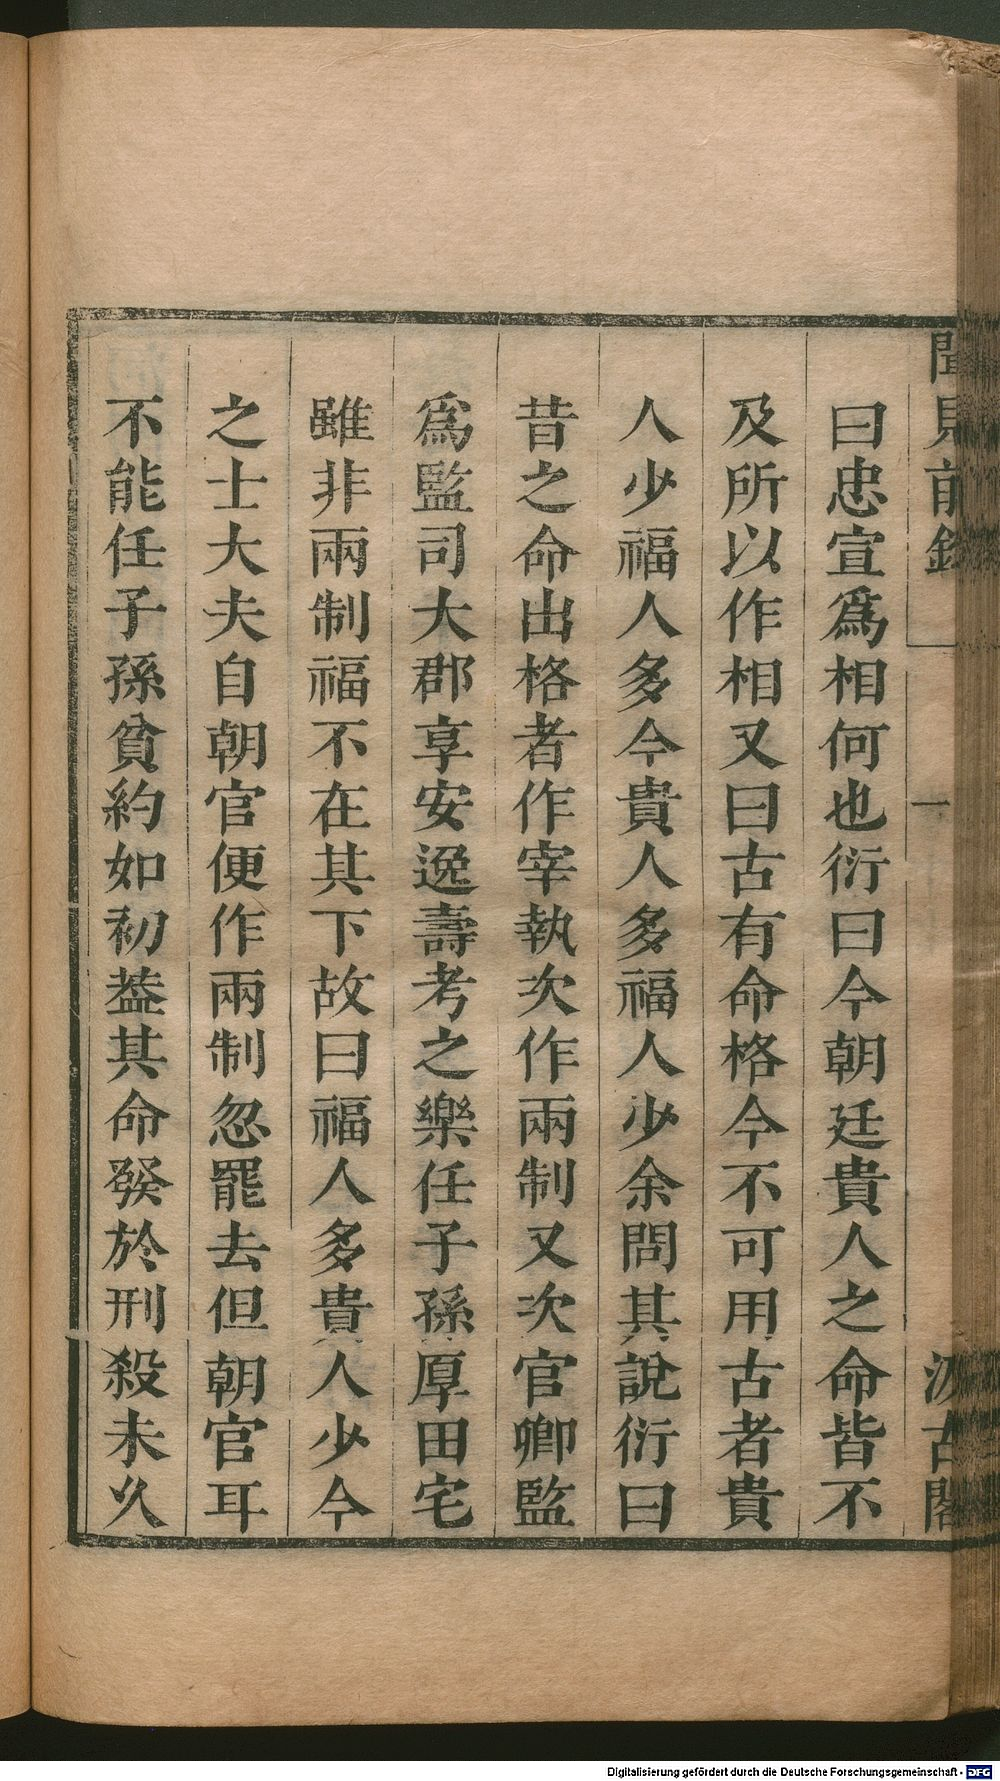 聞見前錄
一
汲古閣
曰忠宣爲相何也衍曰今朝廷貴人之命皆不
及所以作相又曰古有命格今不可用古者貴
人少福人多今貴人多福人少余問其說衍曰
昔之命出格者作宰執次作兩制又次官卿監
爲監司大郡享安逸壽考之樂任子孫厚田宅
雖非兩制福不在其下故曰福人多貴人少今
之士大夫自朝官便作兩制忽罷去但朝官耳
不能任子孫貧約如初葢其命發於刑殺未久
Digitalisierung gefördert durch die Deutsche Forschungsgemeinschaft - DFG